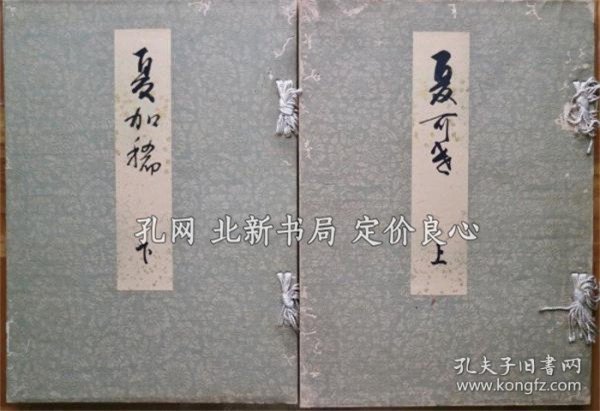 夏可き
上
夏加稀
下
孔网 北新书局 定价良心
孔夫子旧书网
www.kongfz.com